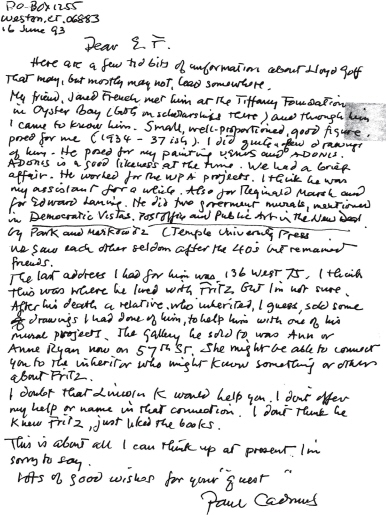 PO-BOX 1255
Weston, CT. 06883
16 June 93
Dear E.F.
Here are a few tid bits of information about Lloyd Goff
That may, but mostly may not, lead somewhere.
My friend, Jared French met him at the Tiffany Foundation
in Oyster Bay (both on scholarships there) and through him
I came to know him. Small, well-proportioned, good figure
posed for me (1934-37 ish). I did quite a few drawings
of him. He posed for my painting Venus and ADONIS.
ADONIS is a good likeness at the time. We had a brief
affair. He worked for the WPA projects. I think he was
my assistant for a while. Also for Reginald Marsh and
for Edward Laning. He did two goverment murals, mentioned
in Democratic Vistas, Post Offices and Public Art in the New Deal
by Park and Markowitz (Temple University Press
We saw each other seldom after the 40s but remained
friends.
The last address I had for him was 136 West 75. I think
this was where he lived with Fritz but I'm not sure.
After his death a relative, who inherited, I guess, sold some
drawings I had done of him, to help him with one of his
mural projects. The Gallery he sold to was Ann or
Anne Ryan now on 57th St. She might be able to connect
you to the inheritor who might know something or others
about Fritz.
I doubt that Lincoln K would help you. I don't offer
my help or name in that connection. I dont think he
knew Fritz, just liked the books.
This is about all I can think up at present. I'm
sorry to say.
Lots of good wishes for your "quest"
Paul Cadmus